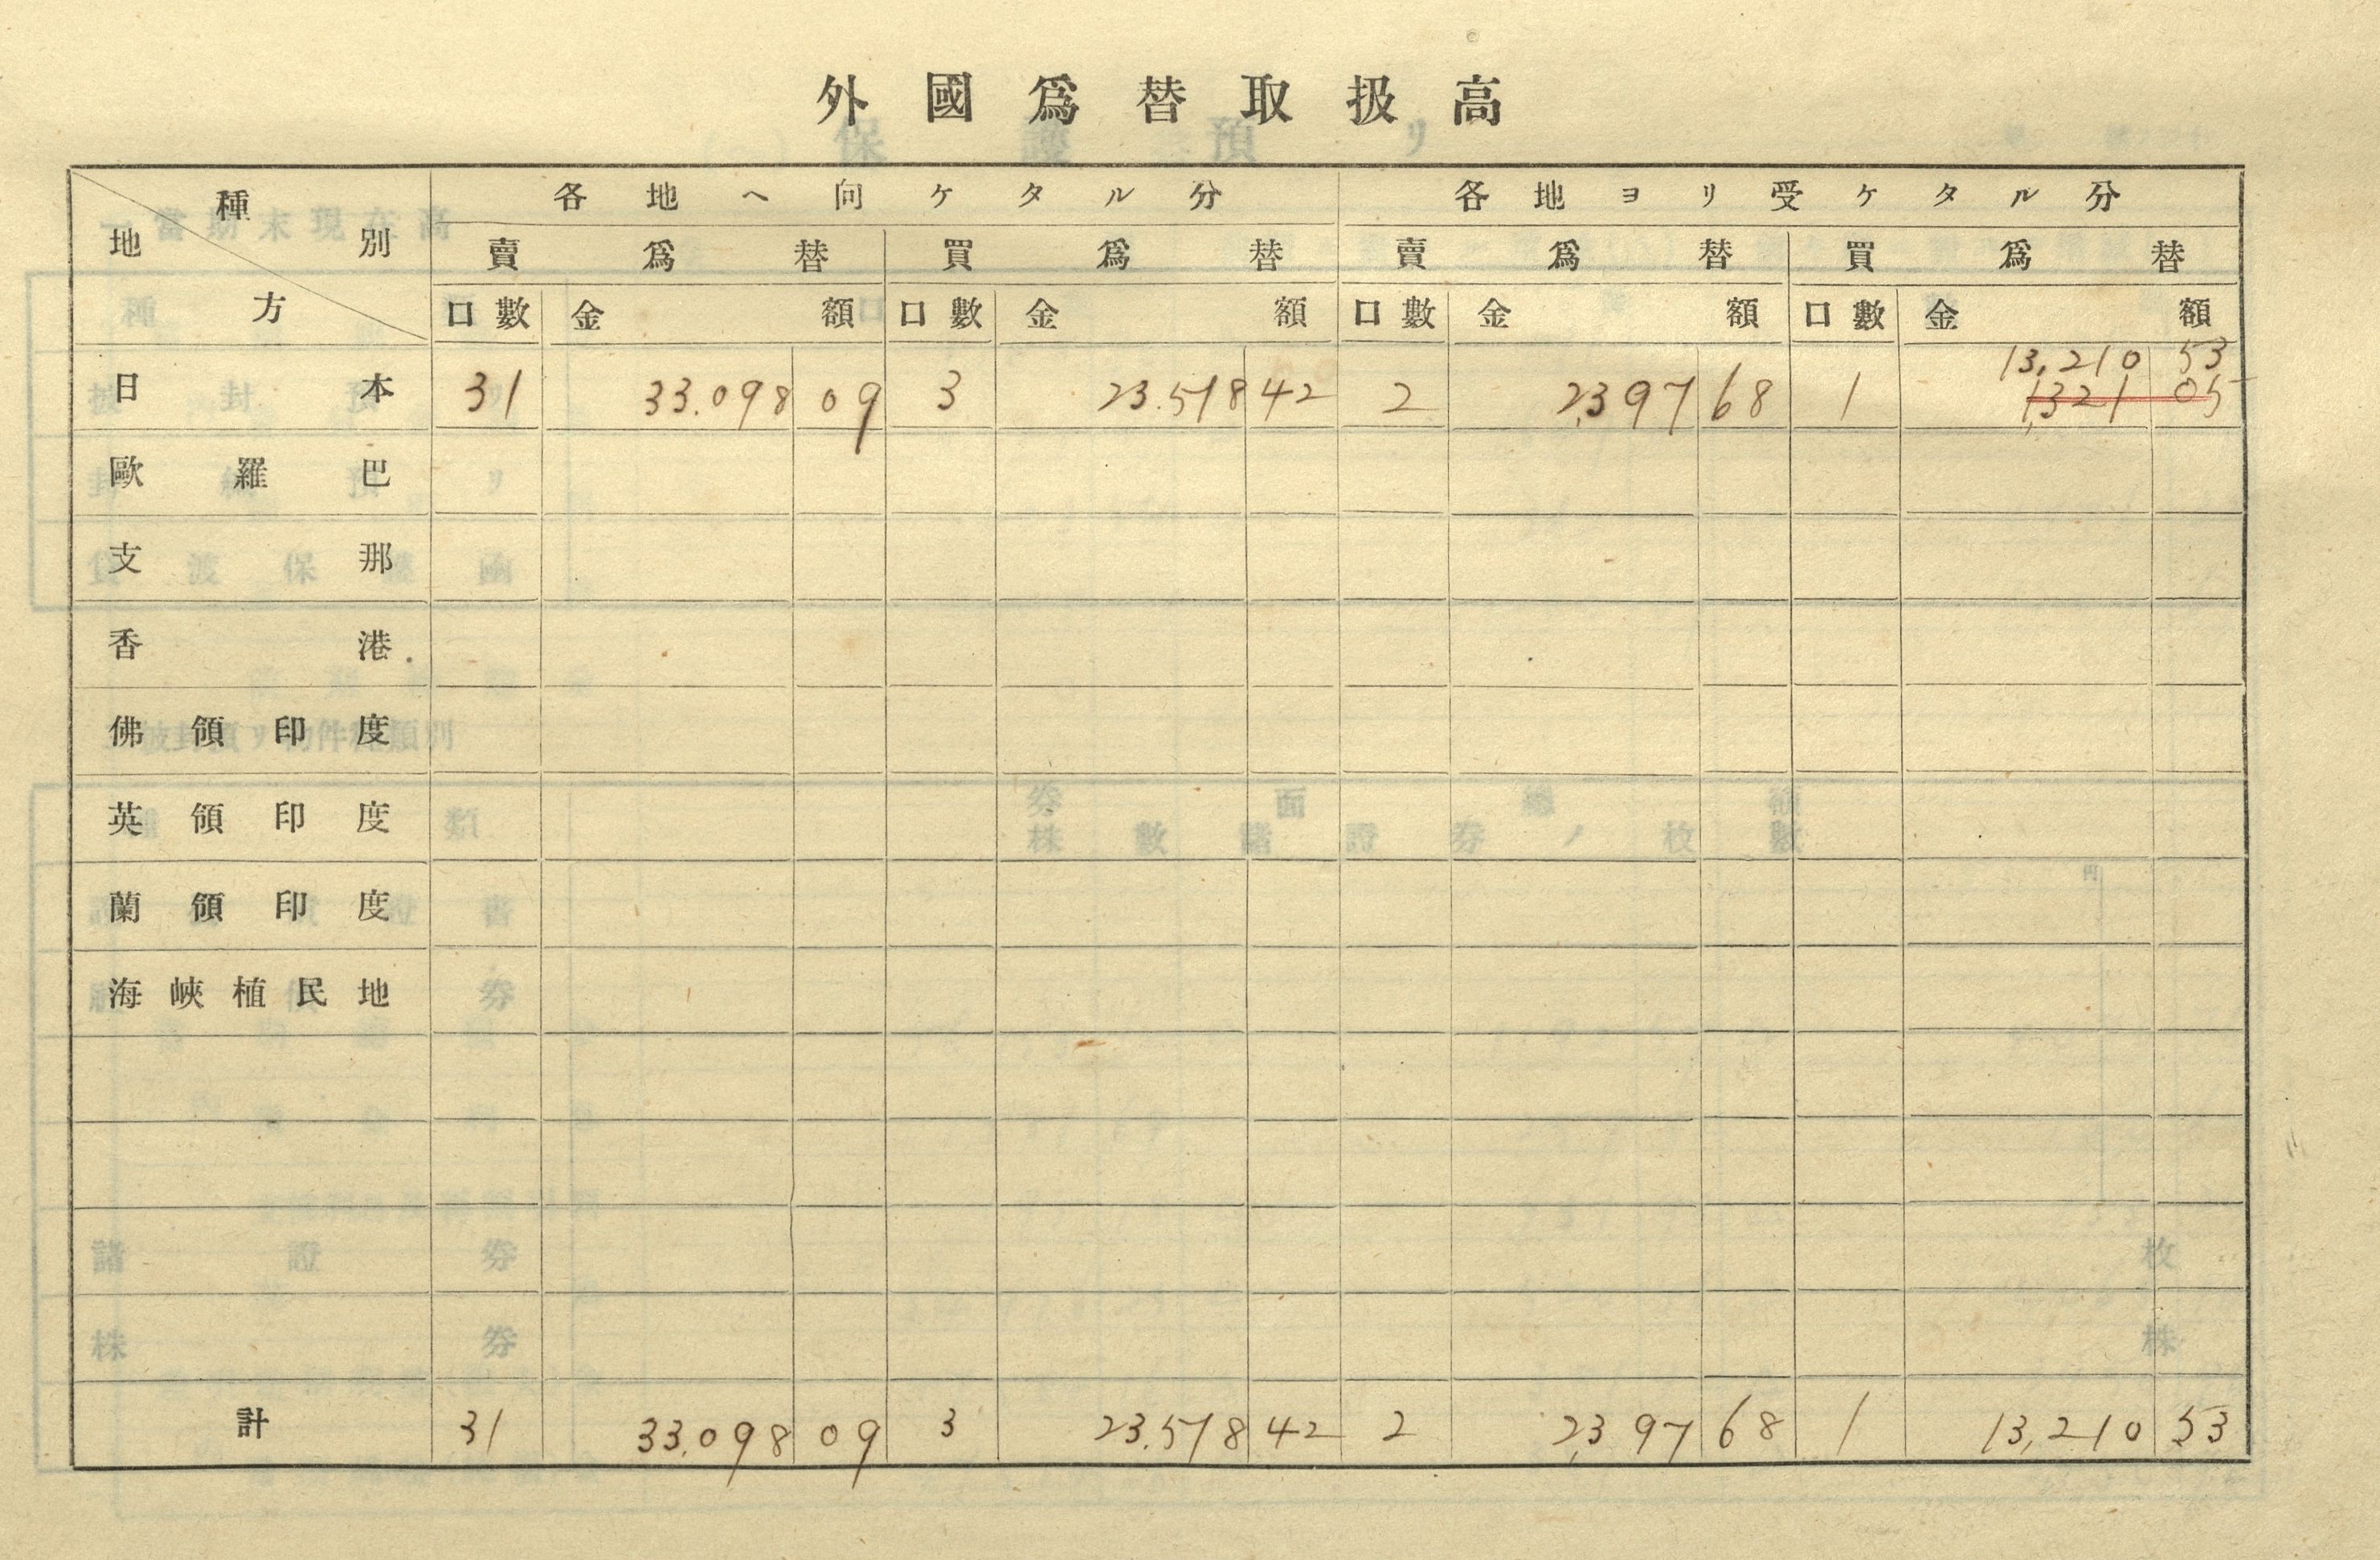 外國爲替取扱高
種別 地方 各地ヘ向ケタル分 各地ヨリ受ケタル分
賣爲替 買爲替 賣爲替 買爲替
口數 金額 口數 金額 口數 金額 口數 金額
13,210 53
日本 31 33.098 09 3 23.518 42 2 2,397 68 1 1,321 05
歐羅巴
支那
香港
佛領印度
英領印度
蘭領印度
海峽植民地
計 31 33,098 09 3 23.518 42 2 2,397 68 1 13,210 53